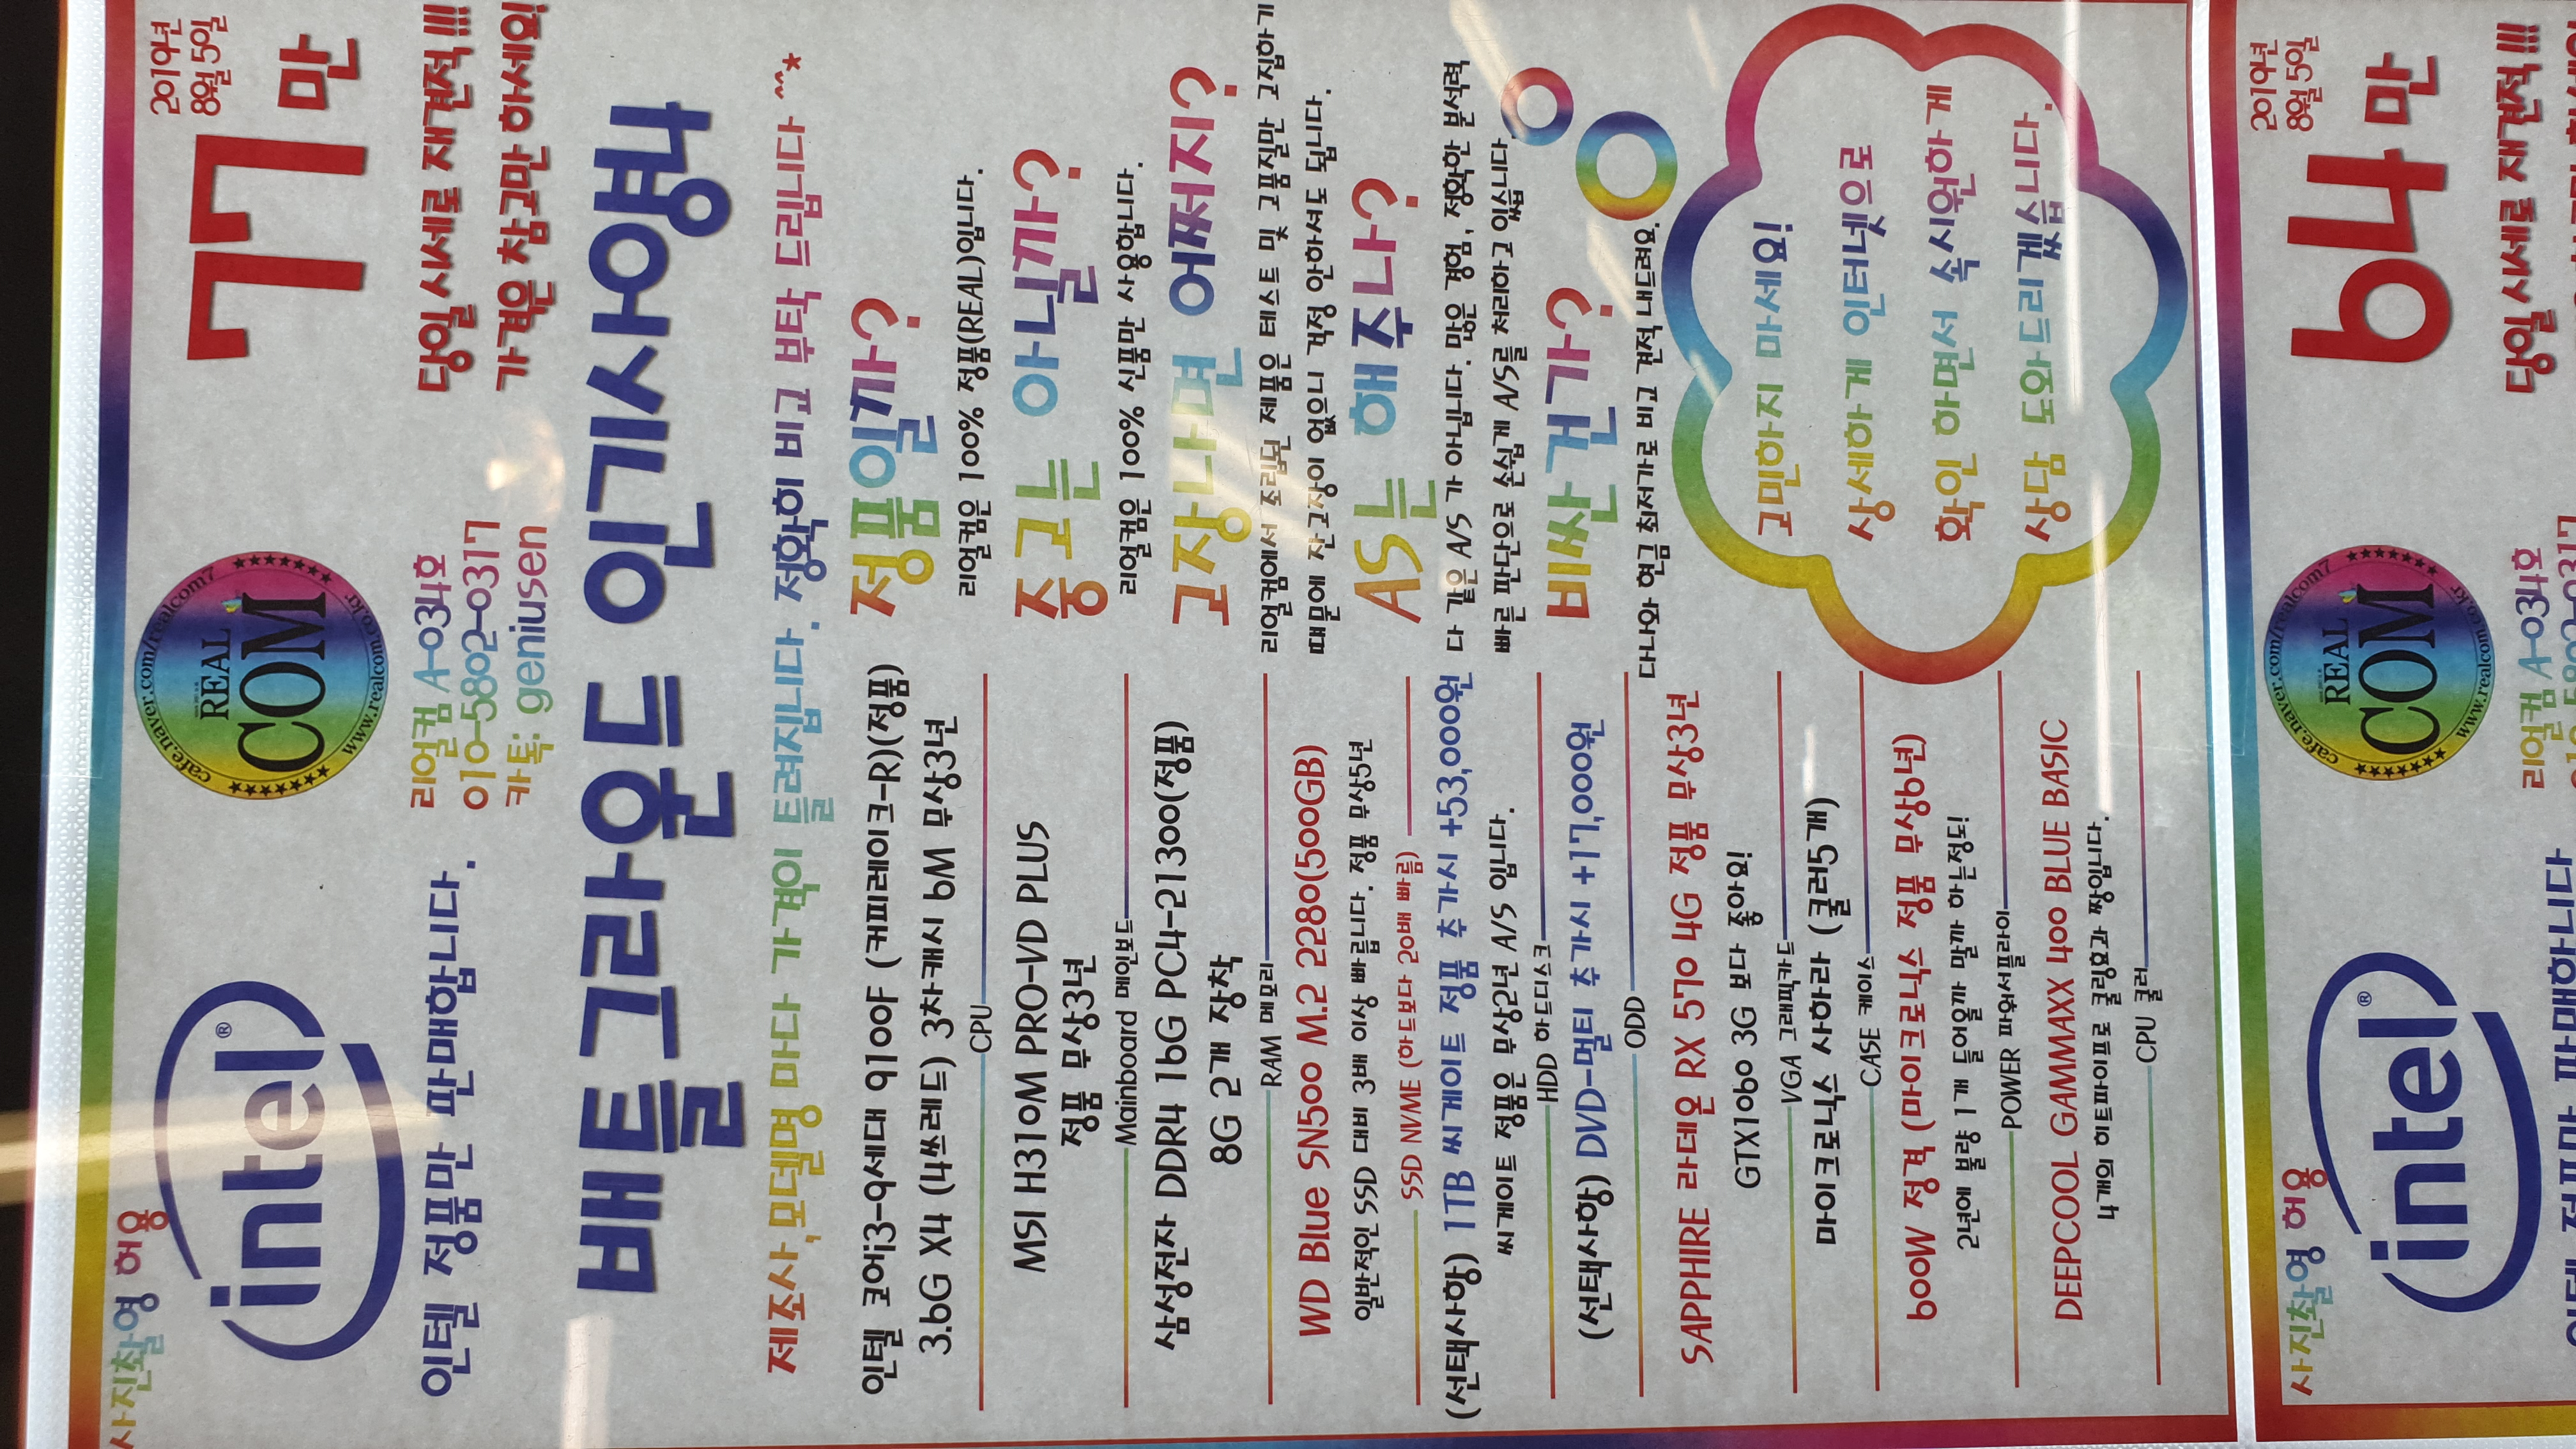 사진촬영 허용
intel®
cafe.naver.com/realcom7
REAL
COM
www.realcom.co.kr
2019년
8월 5일
77만
인텔 정품만 판매합니다.
리얼컴 A-034호
010-5802-0317
카톡: geniusen
당일 시세로 재견적!!!!
가격은 참고만 하세요!
배틀그라운드 인기사양
제조사,모델명 마다 가격이 틀려집니다. 정확히 비고 부탁 드립니다 ^^*
인텔 코어i3-9세대 9100F (커피레이크-R)(정품)
3.6G X4 (4쓰레드) 3차캐시 6M 무상3년
CPU
MSI H310M PRO-VD PLUS
정품 무상3년
Mainboard 메인보드
삼성전자 DDR4 16G PC4-21300(정품)
8G 2개 장착
RAM 메모리
WD Blue SN500 M.2 2280(500GB)
일반적인 SSD 대비 3배 이상 빠릅니다. 정품 무상5년
SSD NVME (하드보다 20배 빠름)
(선택사항) 1TB 씨게이트 정품 추가시 +53,000원
씨게이트 정품은 무상2년 A/S 입니다.
HDD 하드디스크
(선택사항) DVD-멀티 추가시 +17,000원
ODD
SAPPHIRE 라데온 RX 570 4G 정품 무상3년
GTX1060 3G 보다 좋아요!
VGA 그래픽카드
마이크로닉스 사하라 (쿨러5개)
CASE 케이스
600W 정격 (마이크로닉스 정품 무상6년)
2년에 불량 1개 들어올까 말까 하는정도!
POWER 파워서플라이
DEEPCOOL GAMMAXX 400 BLUE BASIC
4개의 히트파이프로 쿨링효과 짱입니다.
CPU 쿨러
정품일까?
리얼컴은 100% 정품(REAL)입니다.
중고는 아닐까?
리얼컴은 100% 신품만 사용합니다.
고장나면 어쩌지?
리얼컴에서 조립된 제품은 테스트 및 고품질만 고집하기
때문에 잔고장이 없으니 걱정 안하셔도 됩니다.
AS는 해주나?
다 같은 A/S 가 아닙니다. 많은 경험, 정확한 분석력
빠른 판단으로 손쉽게 A/S를 처리하고 있습니다
비싼건가?
다나와 현금 최저가로 비고 견적 내드려요.
고민하지 마세요!
상세하게 인터넷으로
확인 하면서 속시원하게
상담 도와드리겠습니다.
사진촬영 허용
intel®
cafe.naver.com/realcom7
REAL
COM
www.realcom.co.kr
2019년
8월 5일
64만
인텔 정품만 판매합니다
리얼컴 A-034호
010-5802-0317
당일 시세로 재견적!!!!